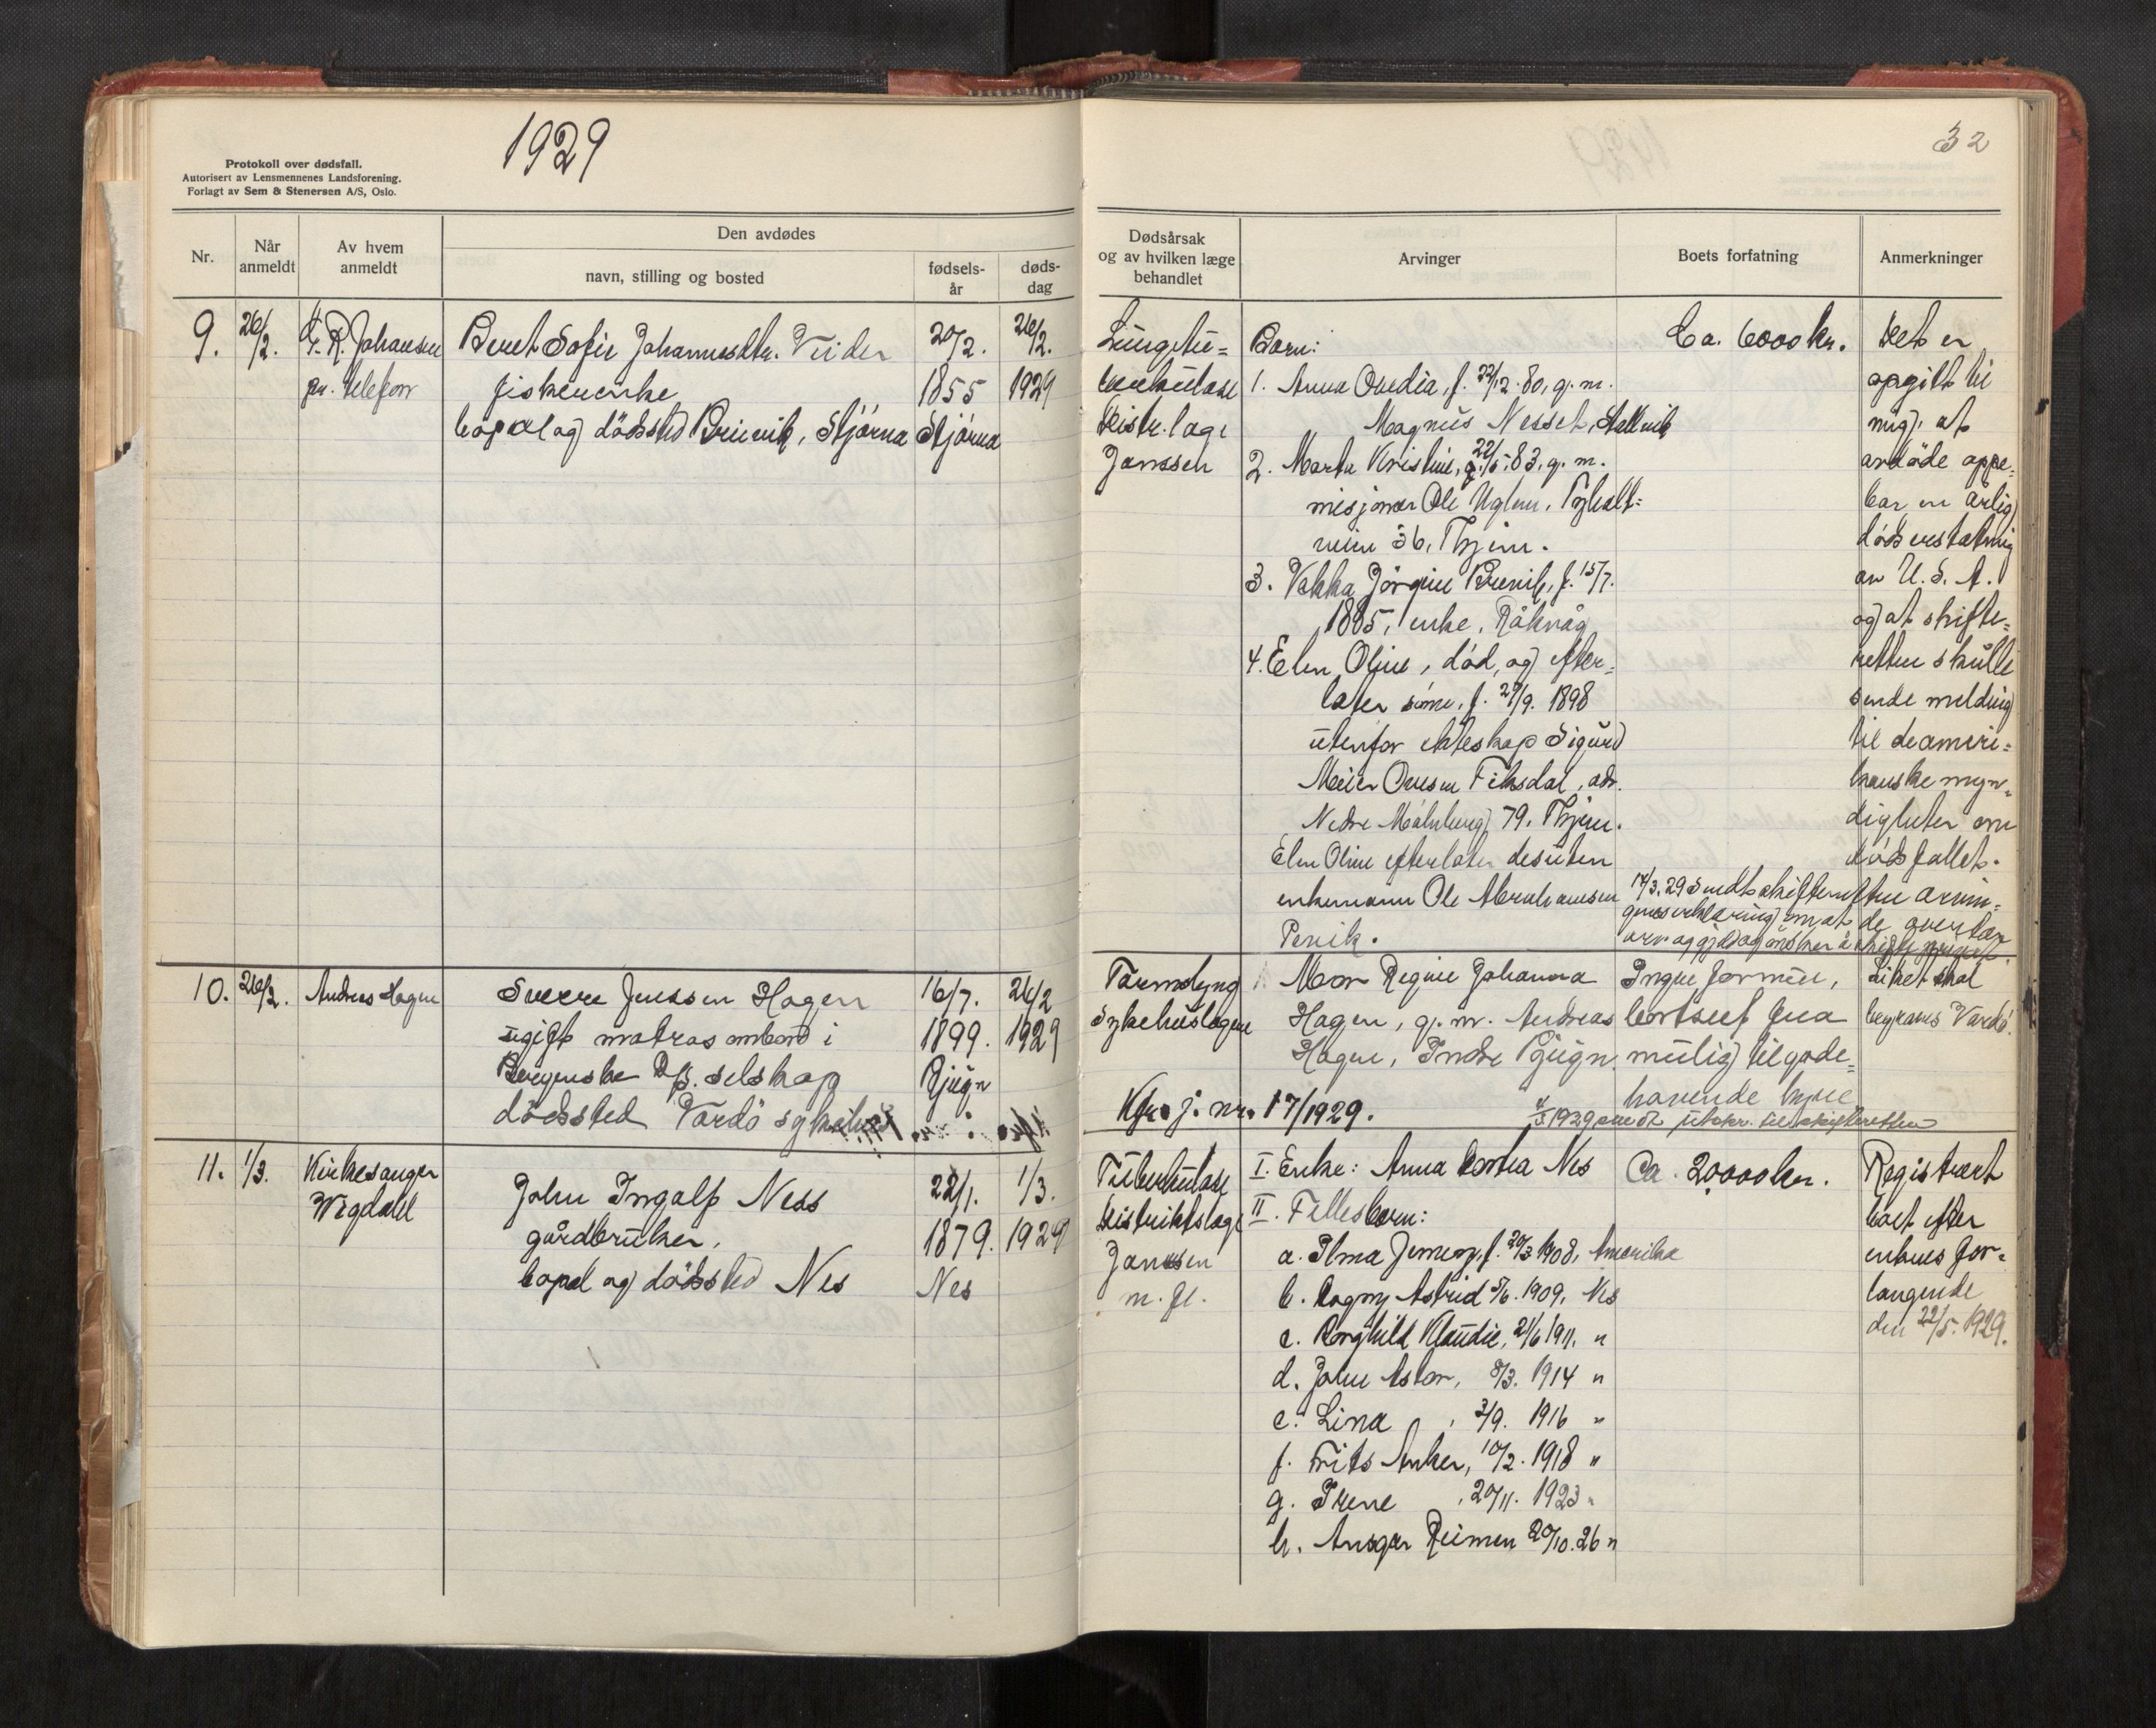 1929
Protokoll over dødsfall.
Autorisert av Lensmennenes Landsforening.
Forlagt av Sem & Stenersen A/S, Oslo.
Nr.
Når anmeldt
Av hvem anmeldt
Den avdødes
navn, stilling og bosted
fødsels-år
døds-dag
9. 26/2. Johansen Beret Sofie Johannesdtr. 20/2. 26/2.
pr. telefon fiskerenke 1855 1929
bopæl og dödssted Stjörna Stjörna
10. 26/2. Andreas Hagen Sverre Jenssen Hagen 16/7. 26/2
ugift matros ombord i 1899. 1929
Bergenske D/S. selskap Bjugn
dödssted Vardö sykehus
11. 1/3. Kirkesanger John Ingolf Ness 22/1. 1/3.
Wigdahl gårdbruker, 1879. 1929
bopæl og dödssted Nes Nes
32
Dødsårsak
og av hvilken læge
behandlet
Arvinger
Boets forfatning
Anmerkninger
Lungetu= Barn: Ca. 6000 kr. Det er
berkulose 1. Anna Ovedia, f. 22/12. 80, g. m. opgitt til
Distr. læge Magnus Nesset, mig, at
Janssen 2. Marta Kristine, 22/5. 83, g. m. avdöde oppe=
misjonær Ole Uglem, bar en årlig
36, Thjem. dödserstatning
3. Jörgine f. 15/7. av U. S. A.
1885, enke, Råkvåg og at skifte=
4. Elen Oline, död, og efter= retten skulle
later sönn, f. 29/9. 1898 sende melding
utenfor ekteskap Sigurd til de ameri=
Meier Ovesen Fiksdal, adr. kanske myn=
Nedre 79, Thjem. digheter om
Elen Oline efterlater desuten dödsfallet.
enkemann Ole Abrahamsen 14/3. 29 Sendt skifteretten arvin=
Pervik. genes erklæring om at de overtar
arv og gjeld og önsker å skifte privat.
Tarmslyng Mor Regine Johanna Ingen formue, Liket skal
Sykehuslægen Hagen, g. m. Andreas bortsett fra begraves Vardö.
Hagen, Indre Bjugn. mulig tilgode=
havende hyre
Kfr. j. nr. 17/1929. 1929 sendt utskr. til skifteretten
Tuberkulose I. Enke: Anna Dortea Nes Ca. 20000 kr. Registrert
Distriktslæge II. Fellesbarn: boet efter
Janssen a. Alma Jenny, f. 20/3 1908, Amerika enkens for=
m. fl. b. Dagny Astrid 5/6. 1909, Nes langende
c. Borghild Klaudie, 21/6 1911. " den 22/5. 1929.
d. John Astor, 8/3. 1914 "
e. Lina , 2/9. 1916 "
f. Frits Anker, 10/2. 1918 "
g. Irene , 20/11. 1923 "
h. Ansgar Reimen 20/10. 26 "